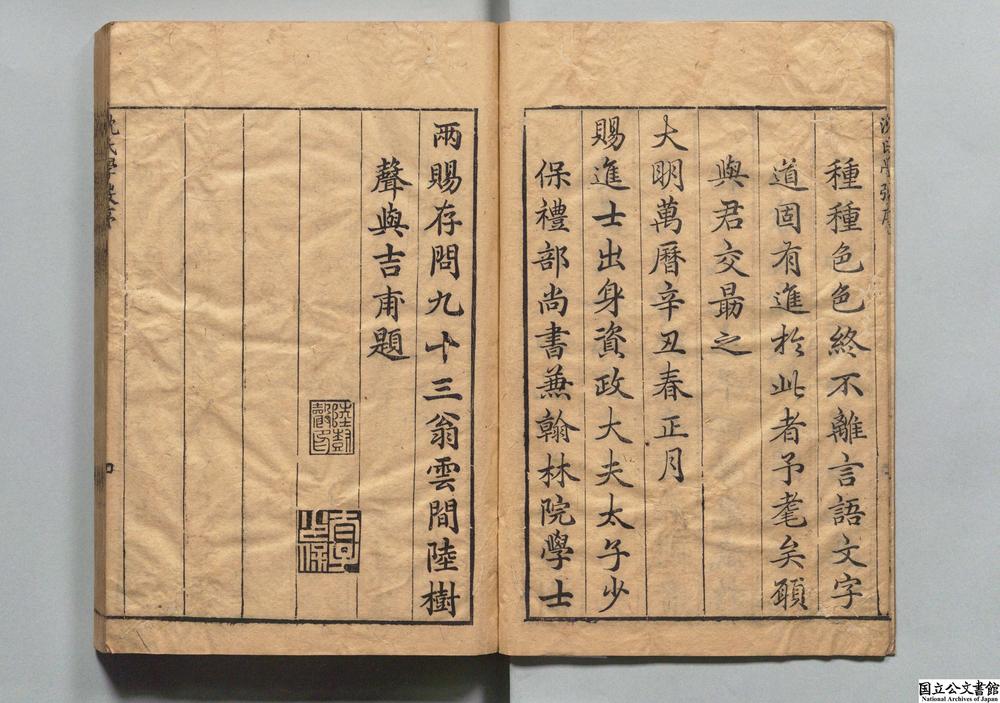 種種色色終不離言語文字
道固有進於此者予耄矣願
與君交最之
大明萬曆辛丑春正月
賜進士出身資政大夫太子少
保禮部尚書兼翰林院學士
兩賜存問九十三翁雲間陸樹
聲與吉甫題
陸樹聲印
沈氏學弢序
国立公文書館
National Archives of Japan